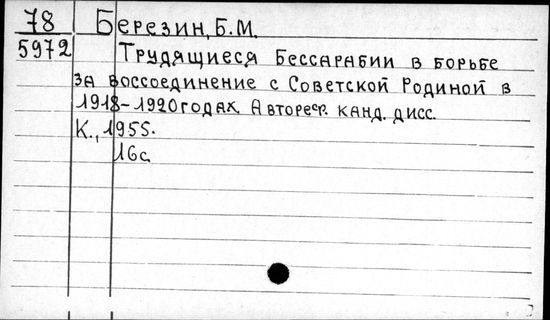 78 Березин, Б.М.
5972 Трудящиеся Бессарабии в борьбе
за воссоединение с Советской Родиной в
1918-1920 годах. Автореф. канд. дисс.
К., 1955.
16с.